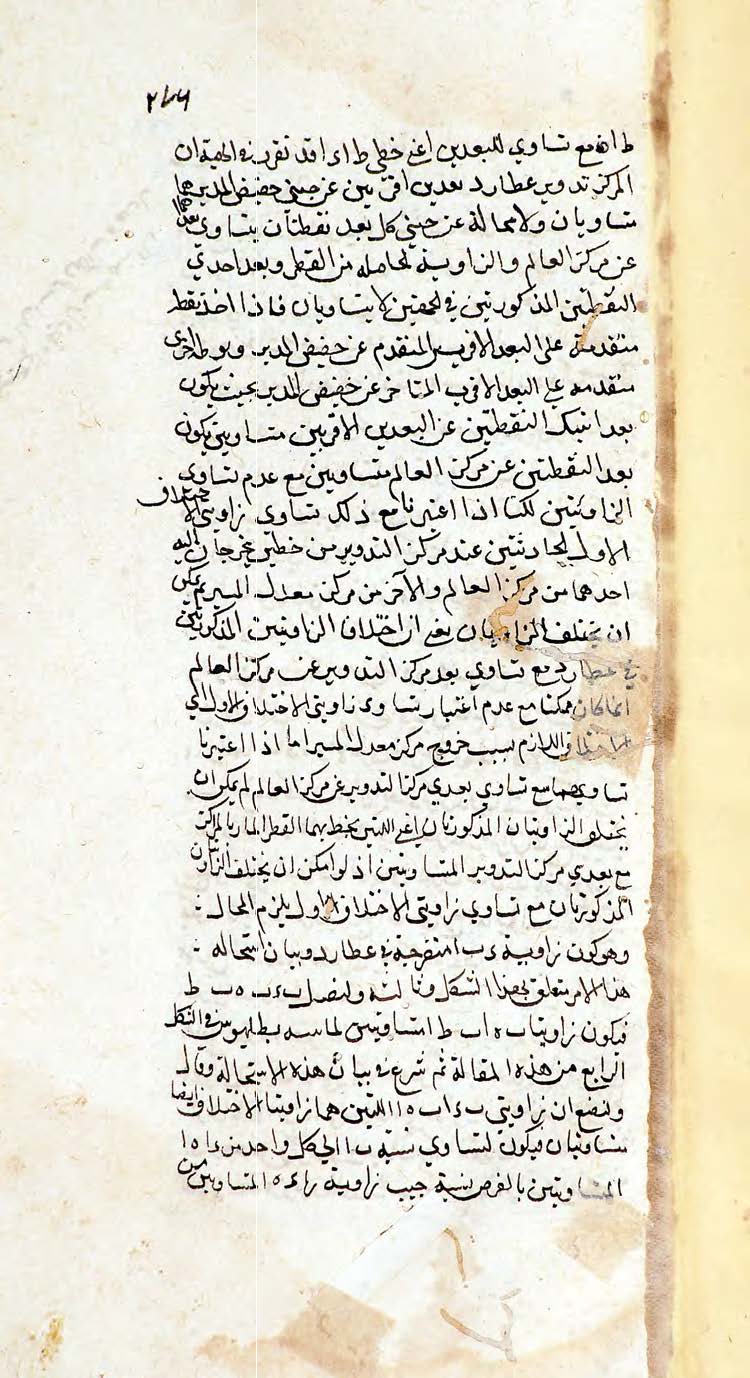 ٢٧٦
ط ا ه مع تساوي البعدين اعني خطي ط ا ء ا قد تقرر في الهيئة ان
لمركز تدوير عطارد بعدين اقربين عن جنبي حضيض المدير هما
متساويان ولا محالة عن جنبي كل بعد نقطتان يتساوى بعدهما
عن مركز العالم والزاوية الحاصلة من القطر وبعد احدي
النقطتين المذكورتين في الجهتين لا يتساويان فاذا اخذ نقطة
متقدمة على البعد الاقرب المتقدم عن حضيض المدير و اخرى
متقدمه على البعد الاقرب المتاخر عن حضيض المدير بحيث يكون
بعدا تينك النقطتين عن البعدين الاقربين متساويين يكون
بعد النقطتين عن مركز العالم متساويين مع عدم تساوي
الزاويتين لكنا اذا اعتبرنا مع ذلك تساوى زاويتي الاختلاف
الاول الحادثتين عند مركز التدوير من خطين يخرجان اليه
احدهما من مركز العالم والآخر من مركز معدل المسير لم يمكن
ان يختلف الزاويتان يعني ان اختلاف الزاويتين المذكورتين
في عطارد مع تساوي بعد مركز التدوير عن مركز العالم
انما كان ممكنا مع عدم اعتبار تساوى زاويتي الاختلاف الاول اي
الاختلاف اللازم بسبب خروج مركز معدل المسير اما اذا اعتبرنا
تساويهما مع تساوي بعدي مركز التدوير عن مركز العالم لم يمكن ان
يختلف الزاويتان المذكورتان اعني اللتين يحيط بهما القطر المار بالمراكز
مع بعدي مركز التدوير المتساويين اذ لو امكن ان يختلف الزاويتان
المذكورتان مع تساوي زاويتي الاختلاف الاول يلزم المحال :
وهو كون زاوية ء ب ا منفرجة في عطارد وبيان استحاله :
هذا الامر متعلق بهذا الشكل وثالثه ولنصل ب ء ب ه ب ط
فيكون زاويتا ب ه ا ب ط ا متساويتين لما بينه بطلميوس في الشكل
الرابع من هذه المقالة ثم شرع في بيان هذه الاستحالة وقال
ولنضع ان زاويتي ب ء ا ب ه ا اللتين هما زاويتا الاختلاف ايضا
متساويتان فيكون لتساوي نسبة ب ا الى كل واحد من ء ا ه ا
المتساويتين بالفرض نسبة جيب زاوية المتساويتين من